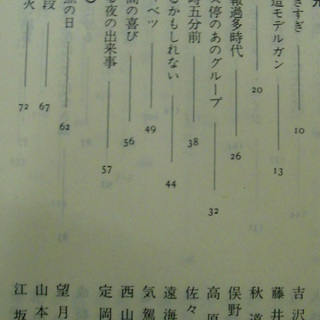 きすぎ 10 吉沢
造モデルガン 13 藤井
20 秋道
報過多時代 26 俣野
ス停のあのグループ 32 高原
時五分前 38 佐々
るかもしれない 44 遠海
ベツ 49 気駕
高の喜び 56 西山
る夜の出来事 57 定岡
の日 62 望月
段 67 山本
火 72 江坂